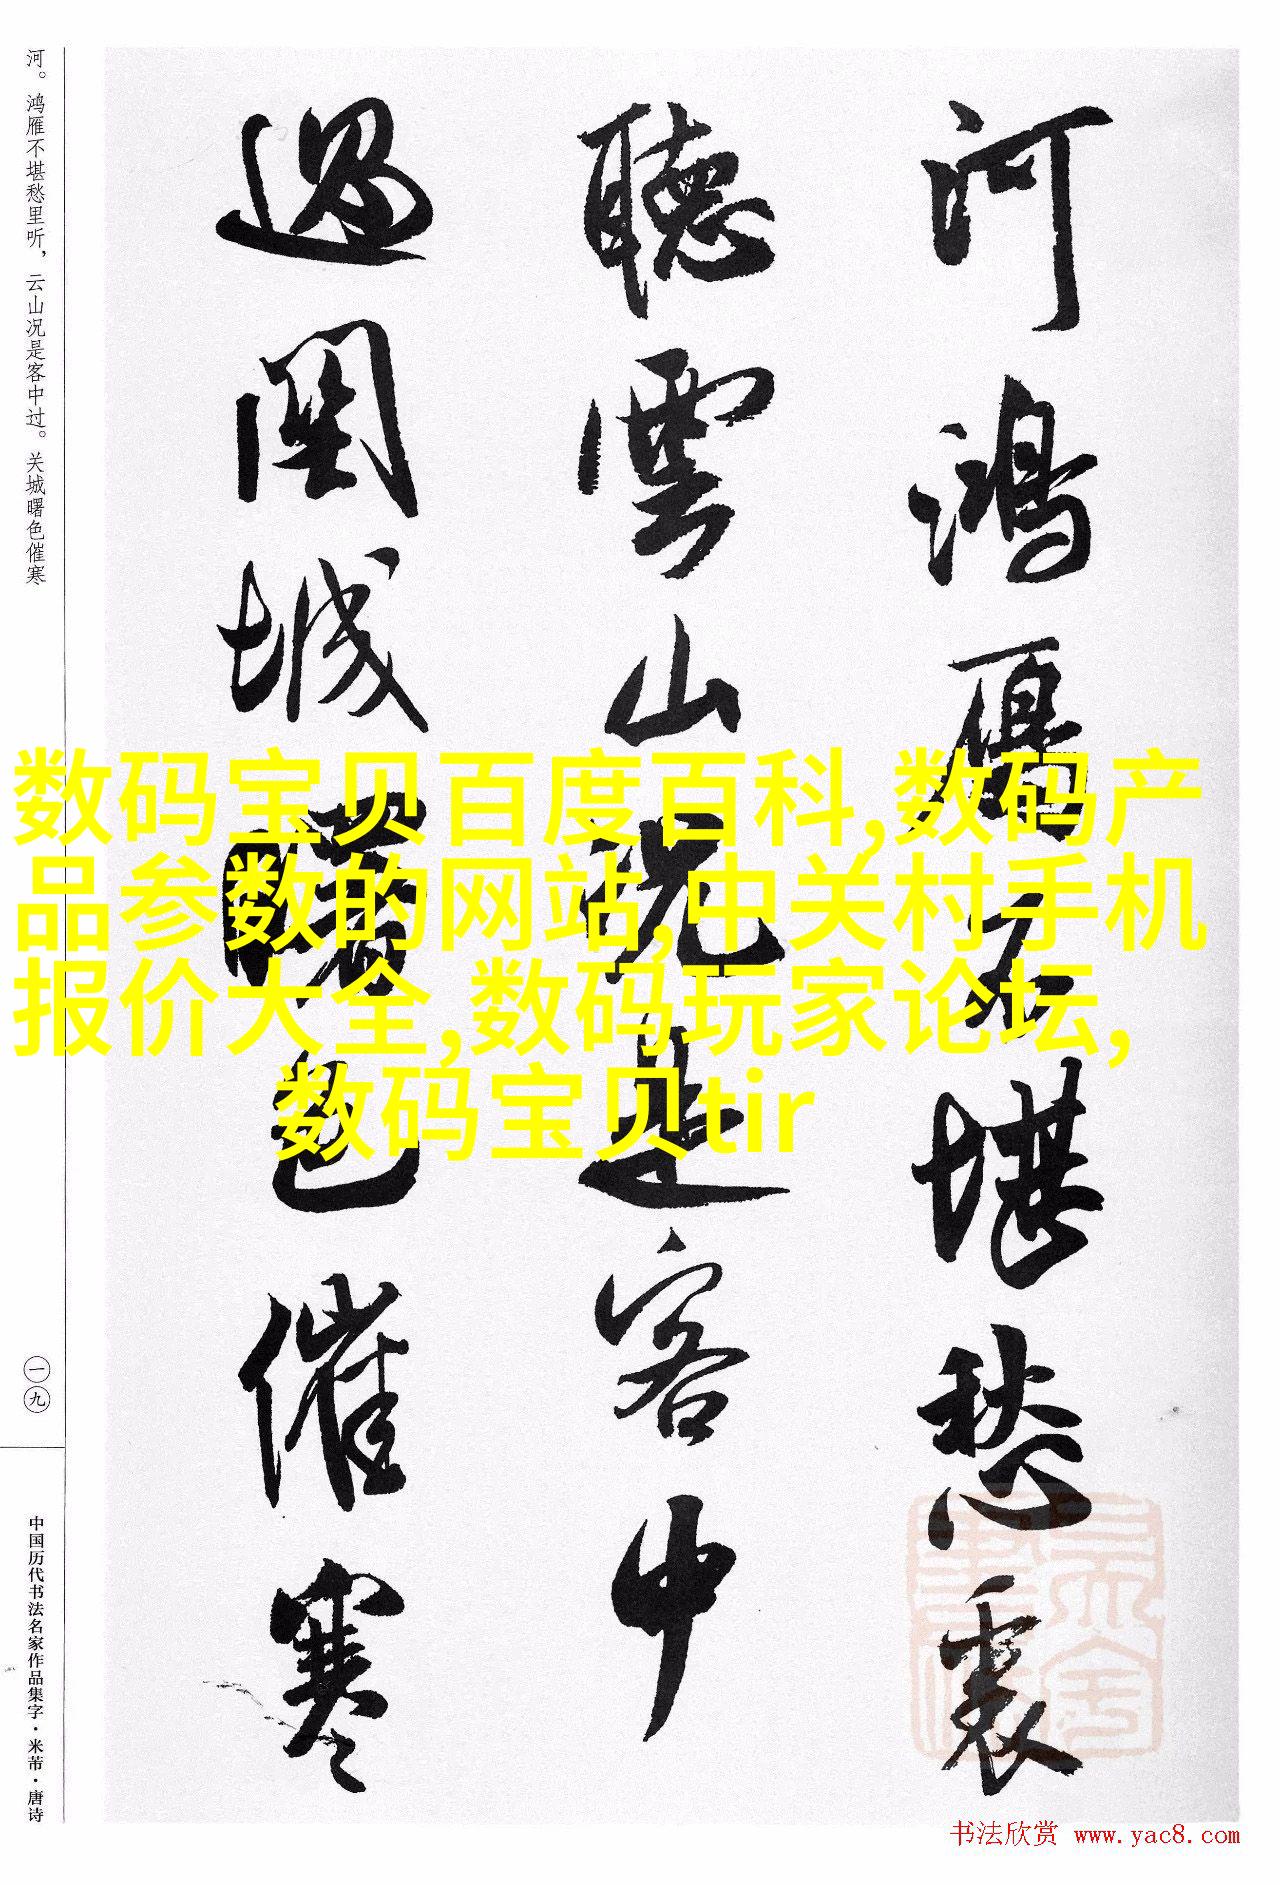 河鴻雁不堪愁裏
聽雲山況是客中
過關城曙色催寒
河。鸿雁不堪愁里听，云山况是客中过。关城曙色催寒
一九
中国历代书法名家作品集字·米芾·唐诗
数码宝贝百度百科,数码产
品参数的网站,中关村手机
报价大全,数码玩家论坛,
数码宝贝tir
书法欣赏 www.yac8.com